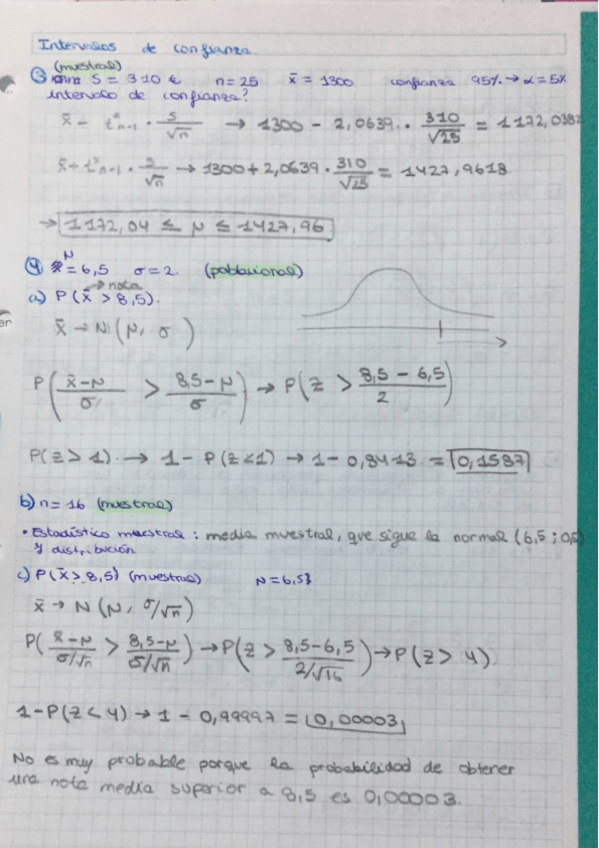 Intervalos de confianza.
(muestral)
③ S = 310 € n = 25 x̄ = 1300 confianza 95% → α = 5%
intervalo de confianza?
x̄ - t²n-1 · s/√n → 1300 - 2,0639 · 310/√25 = 1172,0382
x̄ + t²n-1 · s/√n → 1300 + 2,0639 · 310/√25 = 1427,9618
→ 1172,04 ≤ μ ≤ 1427,96
④ μ = 6,5 σ = 2 (poblacional)
→ nota
a) P(x̄ > 8,5).
x̄ → N(μ, σ)
P(x̄-μ/σ > 8,5-μ/σ) → P(z > 8,5 - 6,5/2)
P(z > 1) → 1 - P(z < 1) → 1 - 0,8413 = 0,1587
b) n = 16 (muestral)
• Estadístico muestral : media muestral, que sigue la normal (6,5 ; 0,5)
y distribución
c) P(x̄ > 8,5) (muestral) μ = 6,5
x̄ → N(μ, σ/√n)
P(x̄-μ/σ/√n > 8,5-μ/σ/√n) → P(z > 8,5-6,5/2/√16) → P(z > 4)
1 - P(z < 4) → 1 - 0,99997 = 0,00003
No es muy probable porque la probabilidad de obtener
una nota media superior a 8,5 es 0,00003.